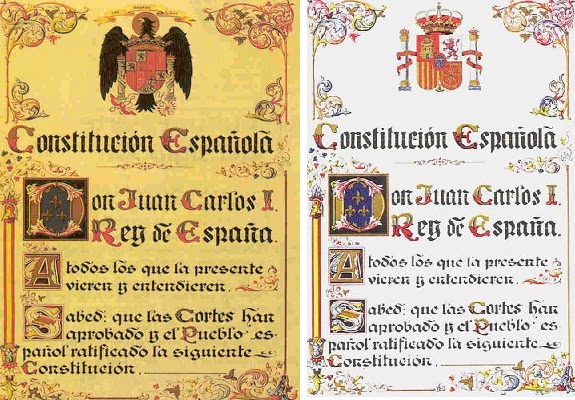 Constitución Española
Don Juan Carlos I.
Rey de España.
A todos los que la presente
vieren y entendieren.
Sabed: que las Cortes han
aprobado y el Pueblo es-
pañol ratificado la siguiente
Constitución
Constitución Española
Don Juan Carlos I.
Rey de España.
A todos los que la presente
vieren y entendieren.
Sabed: que las Cortes han
aprobado y el Pueblo es-
pañol ratificado la siguiente
Constitución